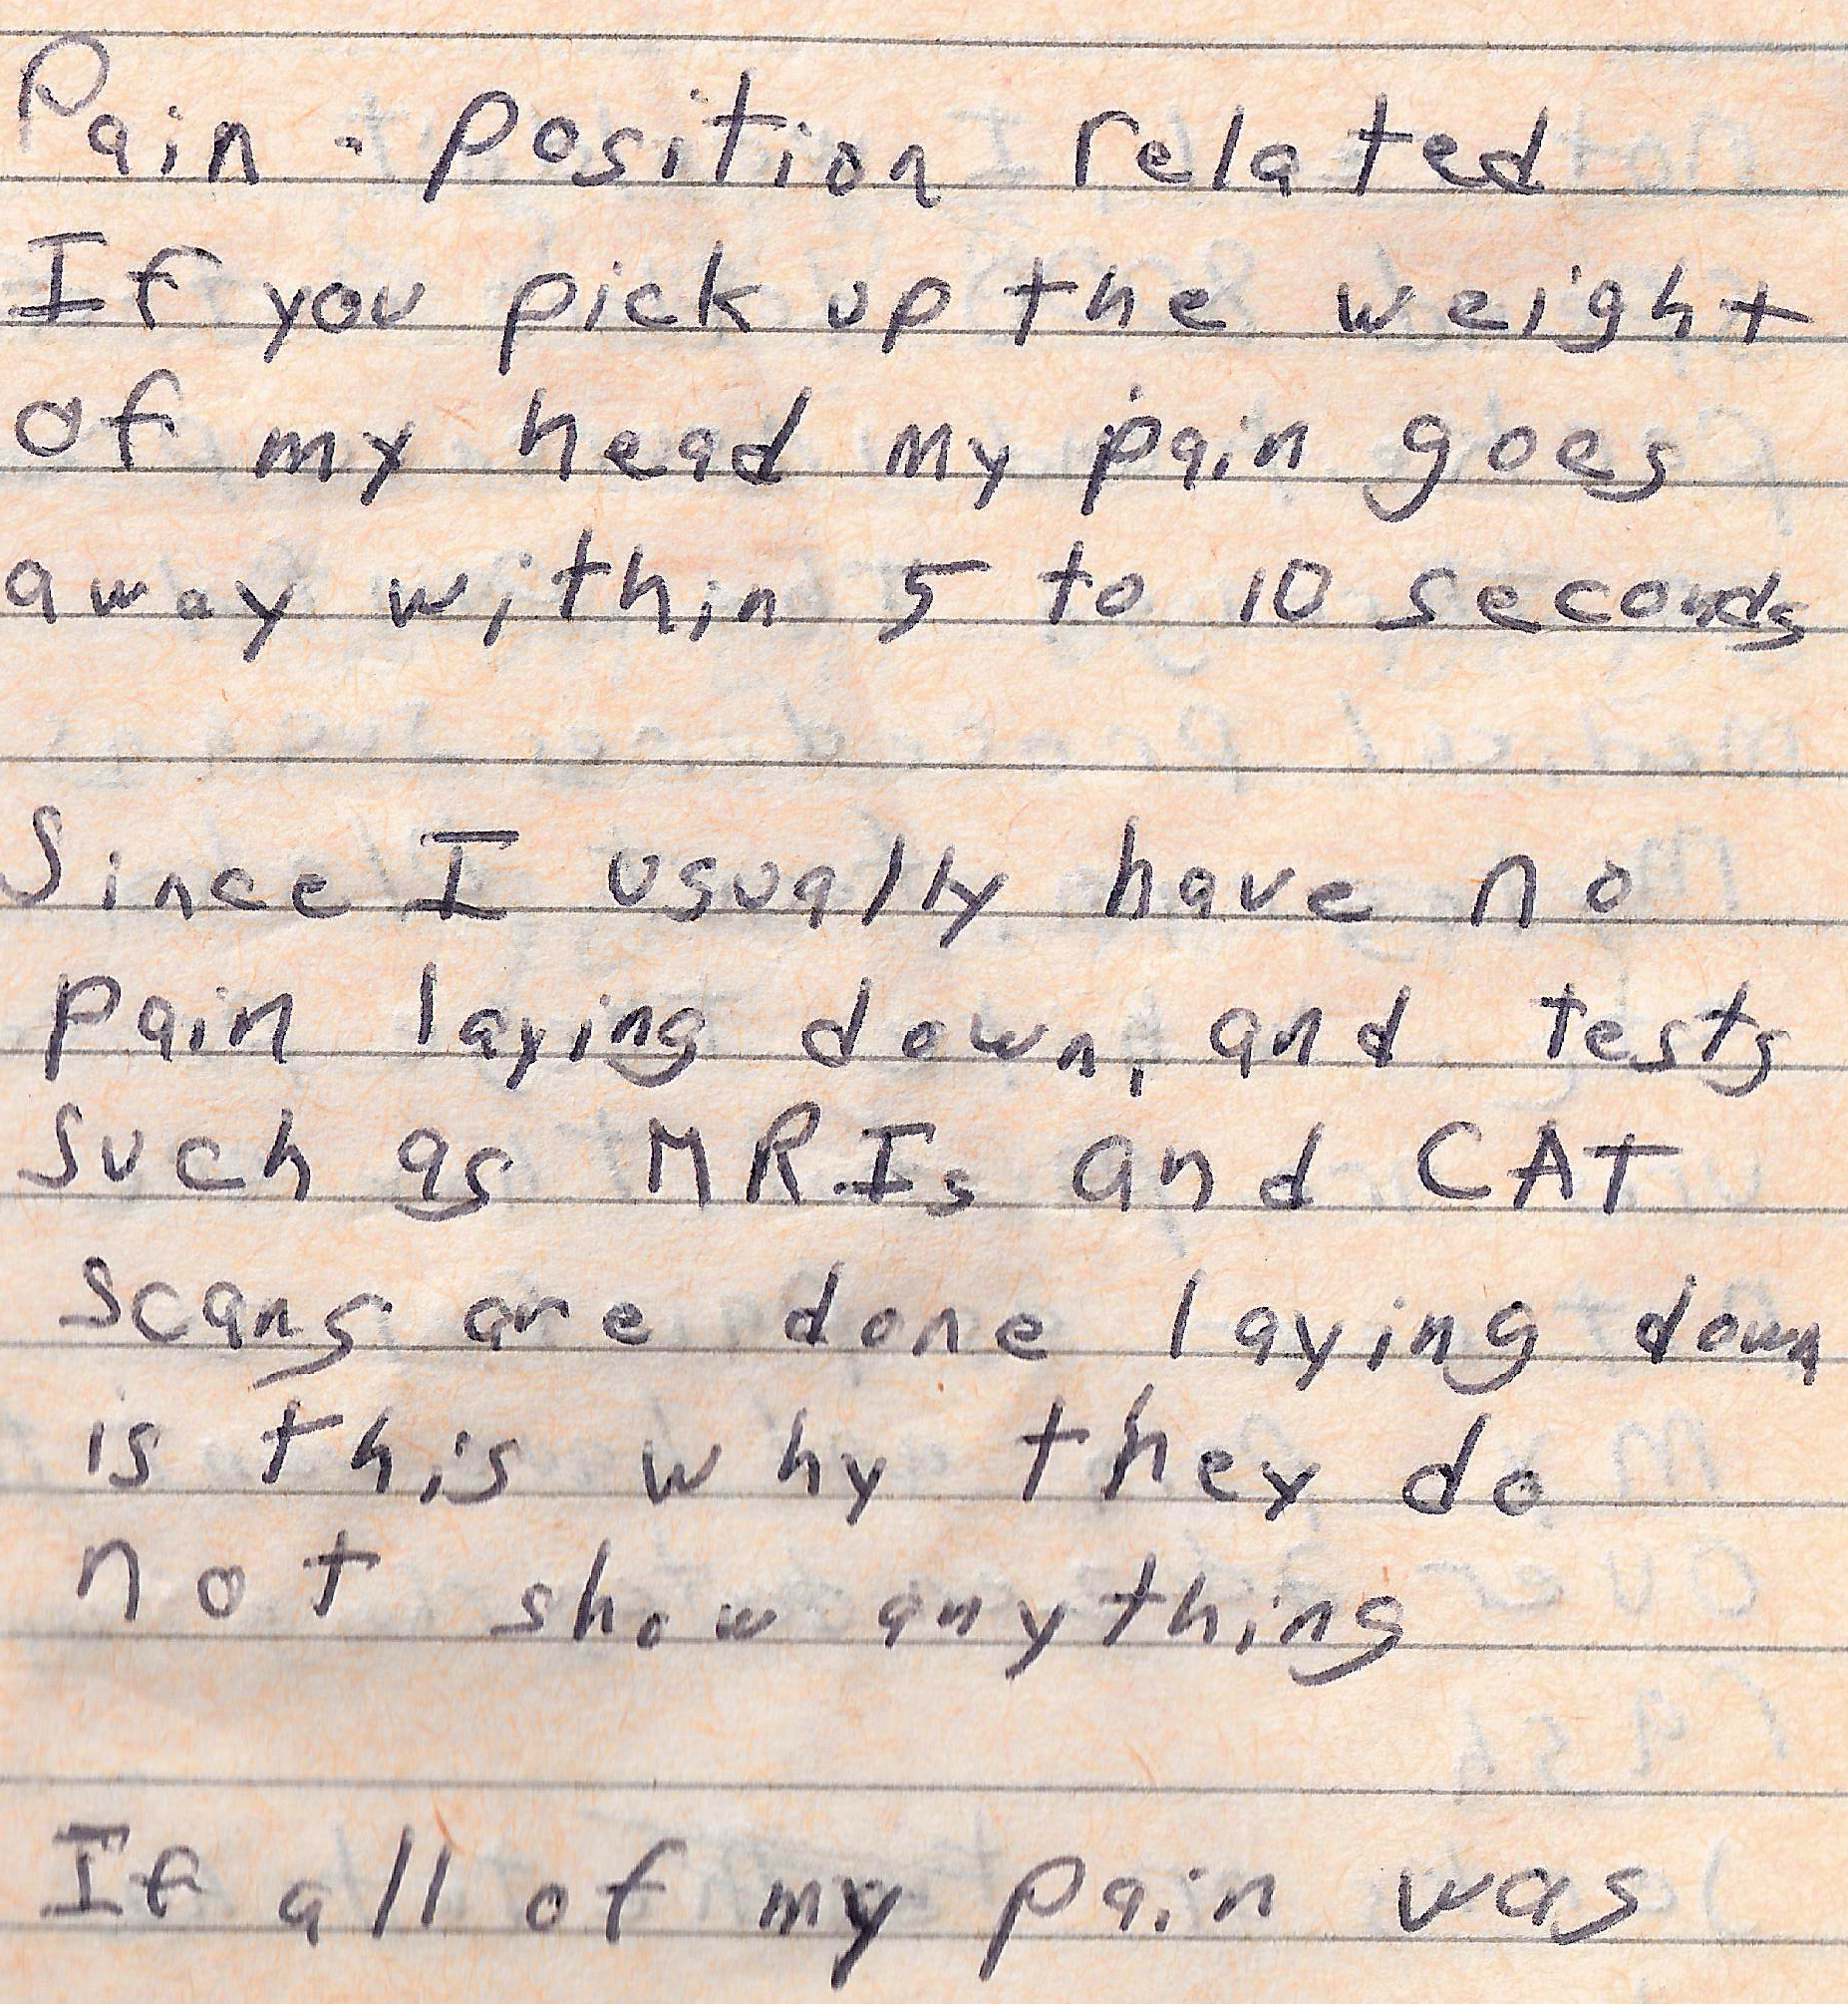 Pain - Position related
If you pick up the weight
of my head my pain goes
away within 5 to 10 seconds
Since I usually have no
pain laying down, and tests
such as MRIs and CAT
scans are done laying down
is this why they do
not show anything
If all of my pain was